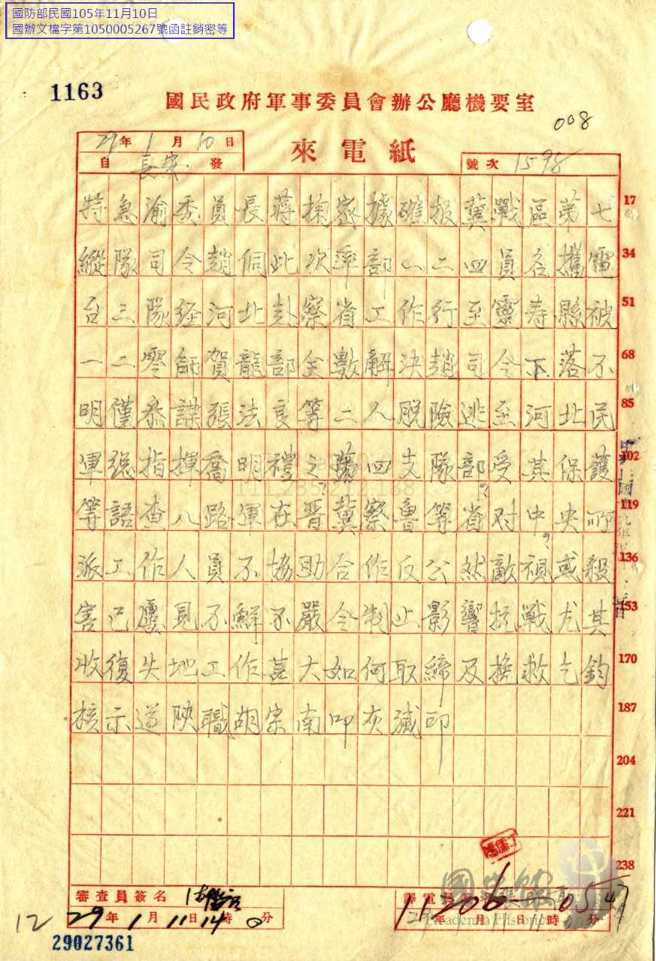 國防部民國105年11月10日
國辦文檔字第1050005267號函註銷密等
1163
國民政府軍事委員會辦公廳機要室
008
29年1月10日
來電紙
自長安發
號次 1598
特急渝委員長蔣撫密據確報冀戰區第七 17
縱隊司令趙侗此次率部一二四員名攜電 34
台三隊經河北赴察省工作行至靈壽縣被 51
一二零師賀龍部全數解決趙司令下落不 68
明僅參謀張法良等二人脫險逃至河北民 85
軍總指揮喬明禮之第四支隊部受其保護 102
等語查八路軍在晉冀察魯等省对中央所 119
派工作人員不協助合作反公然敵視或殺 136
害已屢見不鮮不嚴令制止影響抗戰尤其 153
收復失地工作甚大如何取締及挽救乞鈞 170
核示遵陝職胡宗南叩灰減印 187
204
221
238
審查員簽名
12 29年1月11日14時0分
國史館
Academia Historica
月 日 時 分
29027361